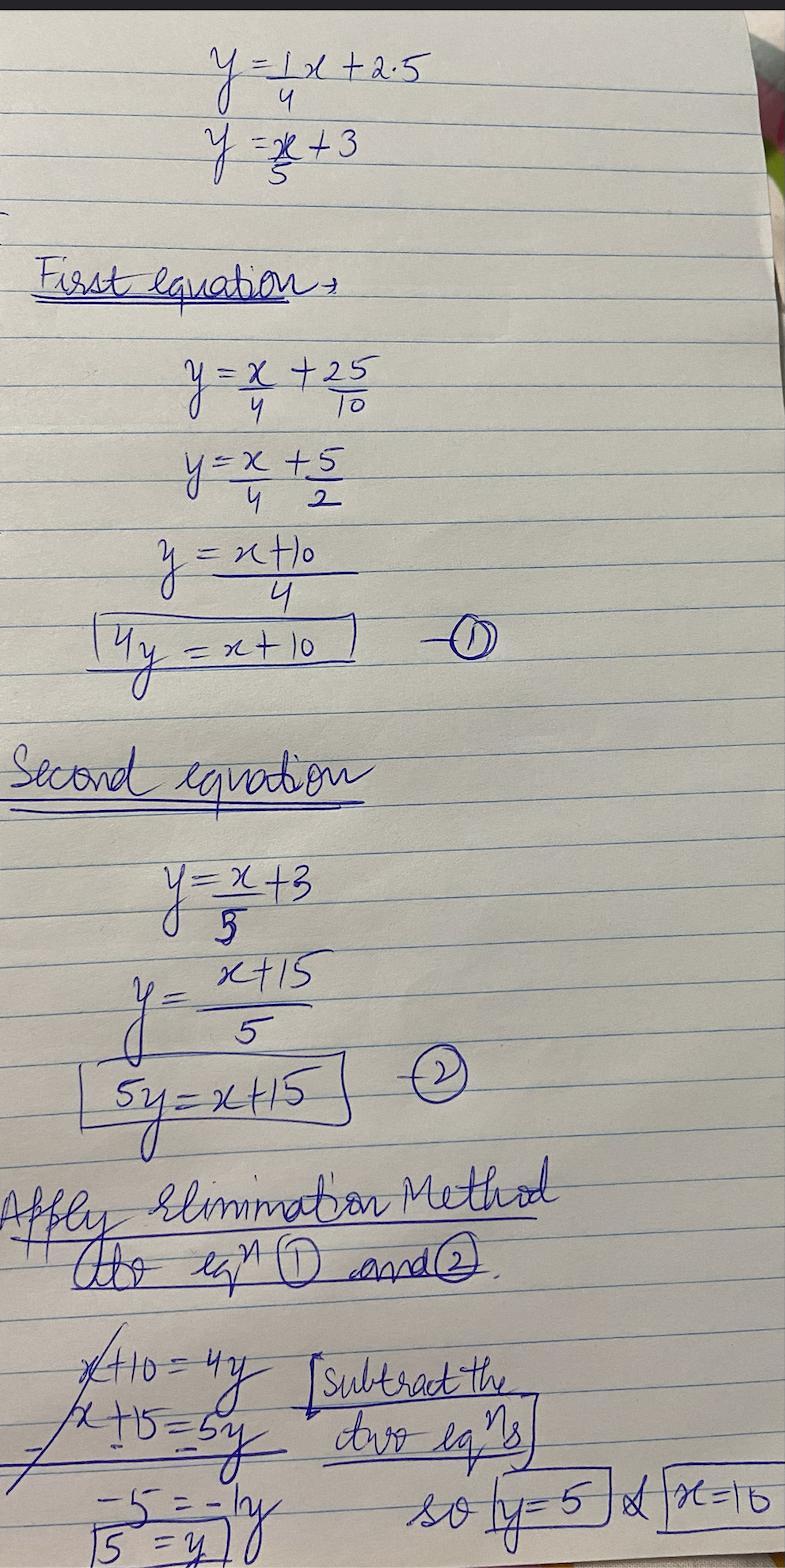 y = 1/4 x + 2.5
y = x/5 + 3
First equation →
y = x/4 + 25/10
y = x/4 + 5/2
y = x+10/4
4y = x+10 -①
Second equation
y = x/5 + 3
y = x+15/5
5y = x+15 -②
Apply Elimination Method
to eqⁿ ① and ②.
x+10 = 4y [subtract the
x+15 = 5y two eqⁿs]
- - -
-5 = -1y
5 = y so y = 5 & x = 10